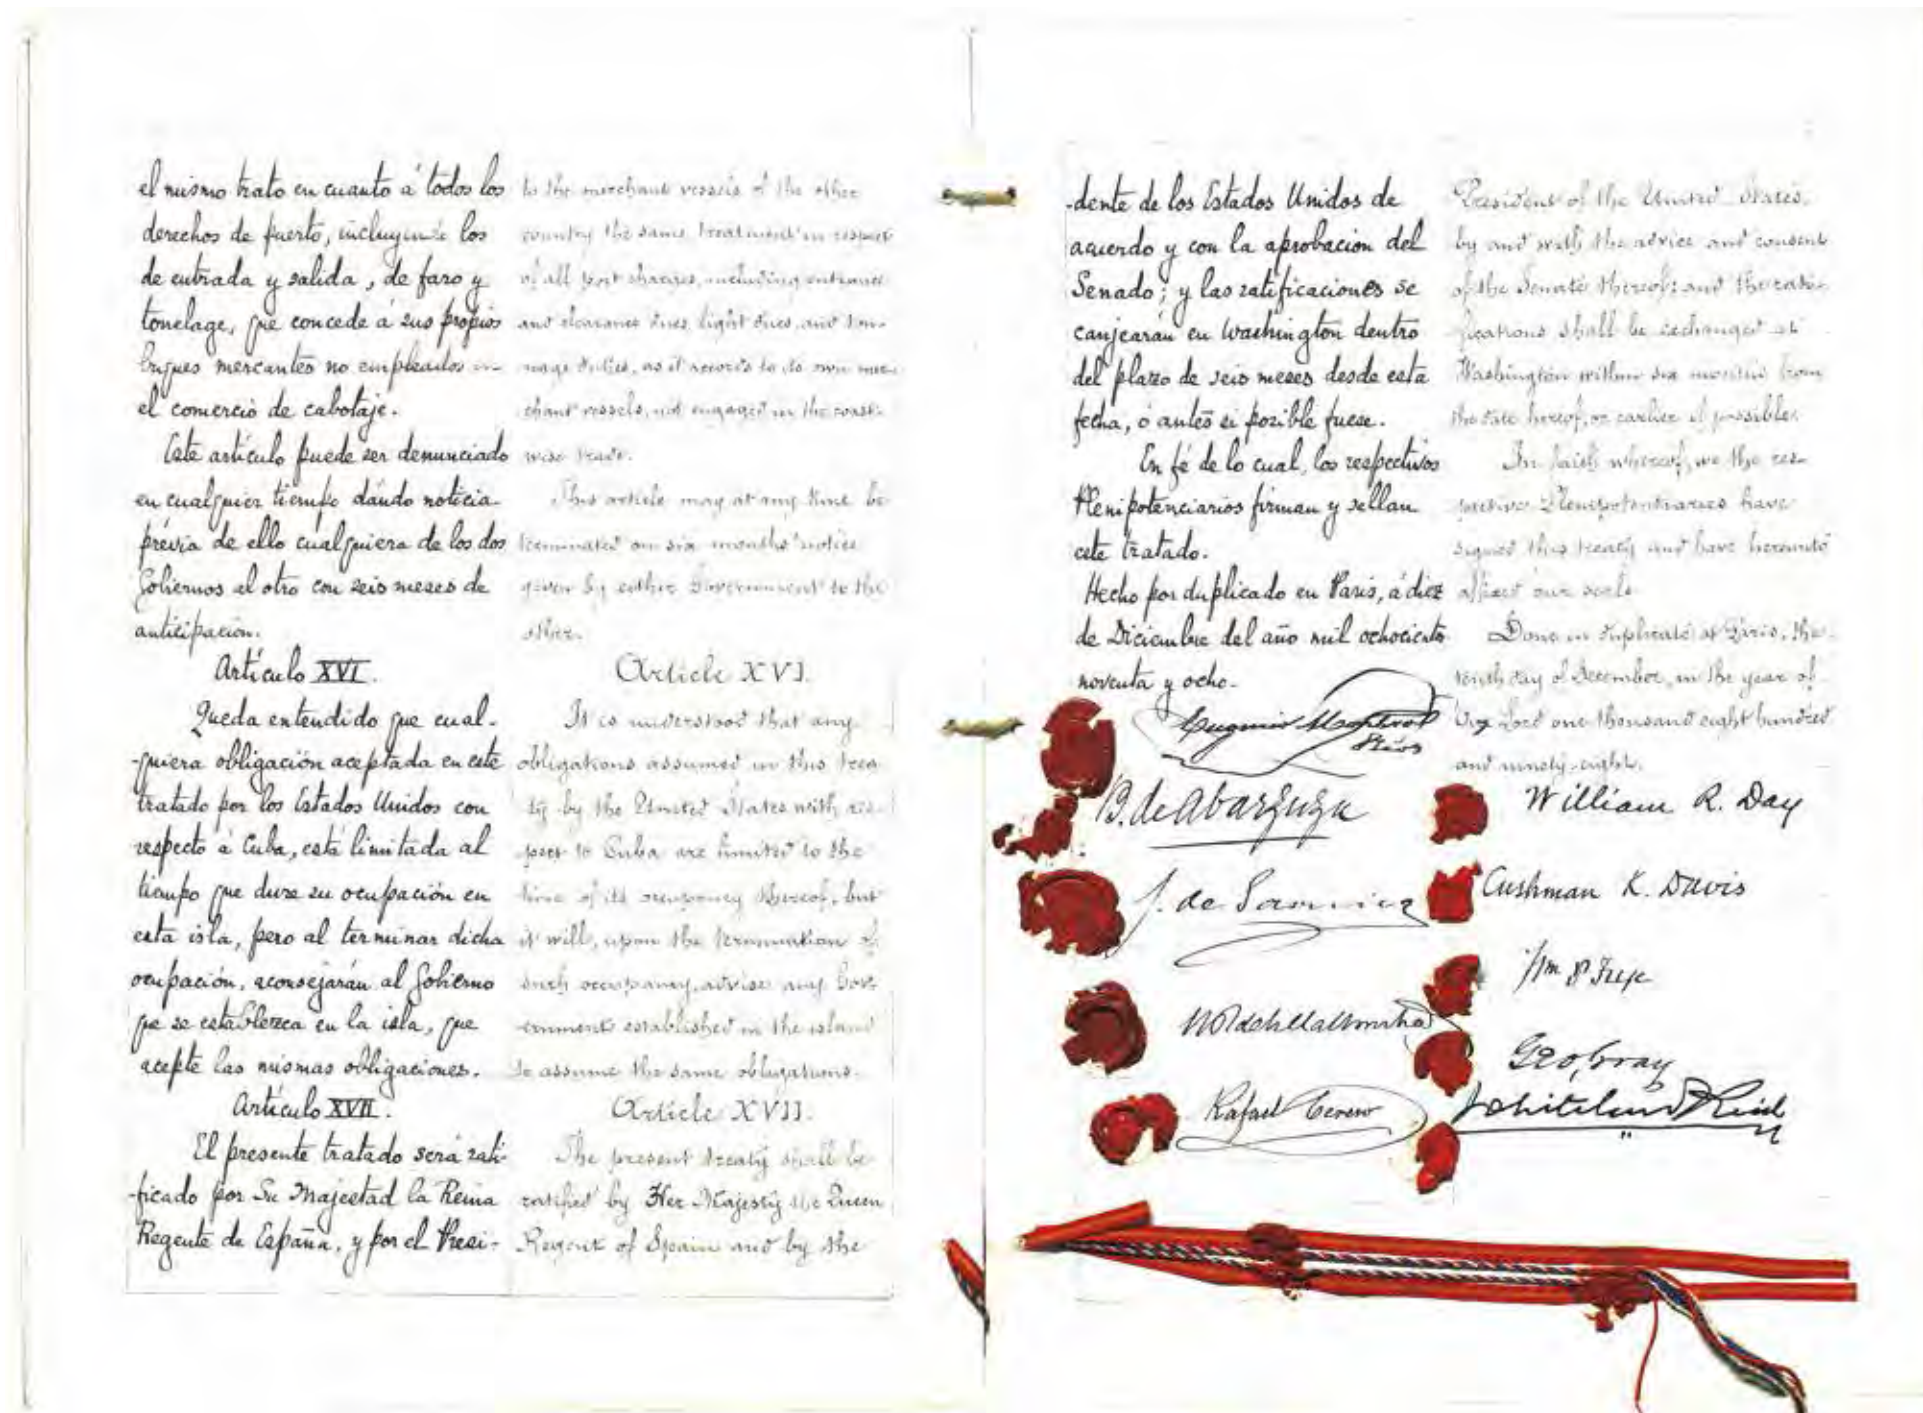 el mismo trato en cuanto á todos los
derechos de puerto, incluyendo los
de entrada y salida, de faro y
tonelage, que concede á sus propios
buques mercantes no empleados en
el comercio de cabotaje.
Este artículo puede ser denunciado
en cualquier tiempo dando noticia
prévia de ello cualquiera de los dos
Gobiernos al otro con seis meses de
anticipación.
Artículo XVI.
Queda entendido que cual-
-quiera obligación aceptada en este
tratado por los Estados Unidos con
respecto á Cuba, está limitada al
tiempo que dure su ocupación en
esta isla, pero al terminar dicha
ocupación, aconsejarán al Gobierno
que se establezca en la isla, que
acepte las mismas obligaciones.
Artículo XVII.
El presente tratado será rati-
-ficado por Su Majestad la Reina
Regente de España, y por el Presi-
to the merchant vessels of the other
country the same treatment in respect
of all port charges, including entrance
and clearance dues, light dues, and ton-
nage duties, as it accords to its own mer-
chant vessels, not engaged in the coast-
wise trade.
This article may at any time be
terminated on six months' notice
given by either Government to the
other.
Article XVI.
It is understood that any
obligations assumed in this trea-
ty by the United States with res-
pect to Cuba are limited to the
time of its occupancy thereof, but
it will, upon the termination of
such occupancy, advise any Gov-
ernment established in the island
to assume the same obligations.
Article XVII.
The present treaty shall be
ratified by Her Majesty the Queen
Regent of Spain and by the
-dente de los Estados Unidos de
acuerdo y con la aprobación del
Senado; y las ratificaciones se
canjearán en Washington dentro
del plazo de seis meses desde esta
fecha, ó antes si posible fuese.
En fé de lo cual, los respectivos
Plenipotenciarios firman y sellan
este tratado.
Hecho por duplicado en Paris, á diez
de Diciembre del año mil ochocientos
noventa y ocho.
President of the United States,
by and with the advice and consent
of the Senate thereof; and the rati-
fications shall be exchanged at
Washington within six months from
the date hereof, or earlier if possible.
In faith whereof, we the res-
pective Plenipotentiaries have
signed this treaty and have hereunto
affixed our seals.
Done in duplicate at Paris, the
tenth day of December, in the year of
Our Lord one thousand eight hundred
and ninety-eight.
Eugenio Montero
Ríos
B. de Abarzuza
J. de Garnica
Rafael Cerero
William R. Day
Cushman K. Davis
Wm P Frye
Geo, Gray
Whitelaw Reid